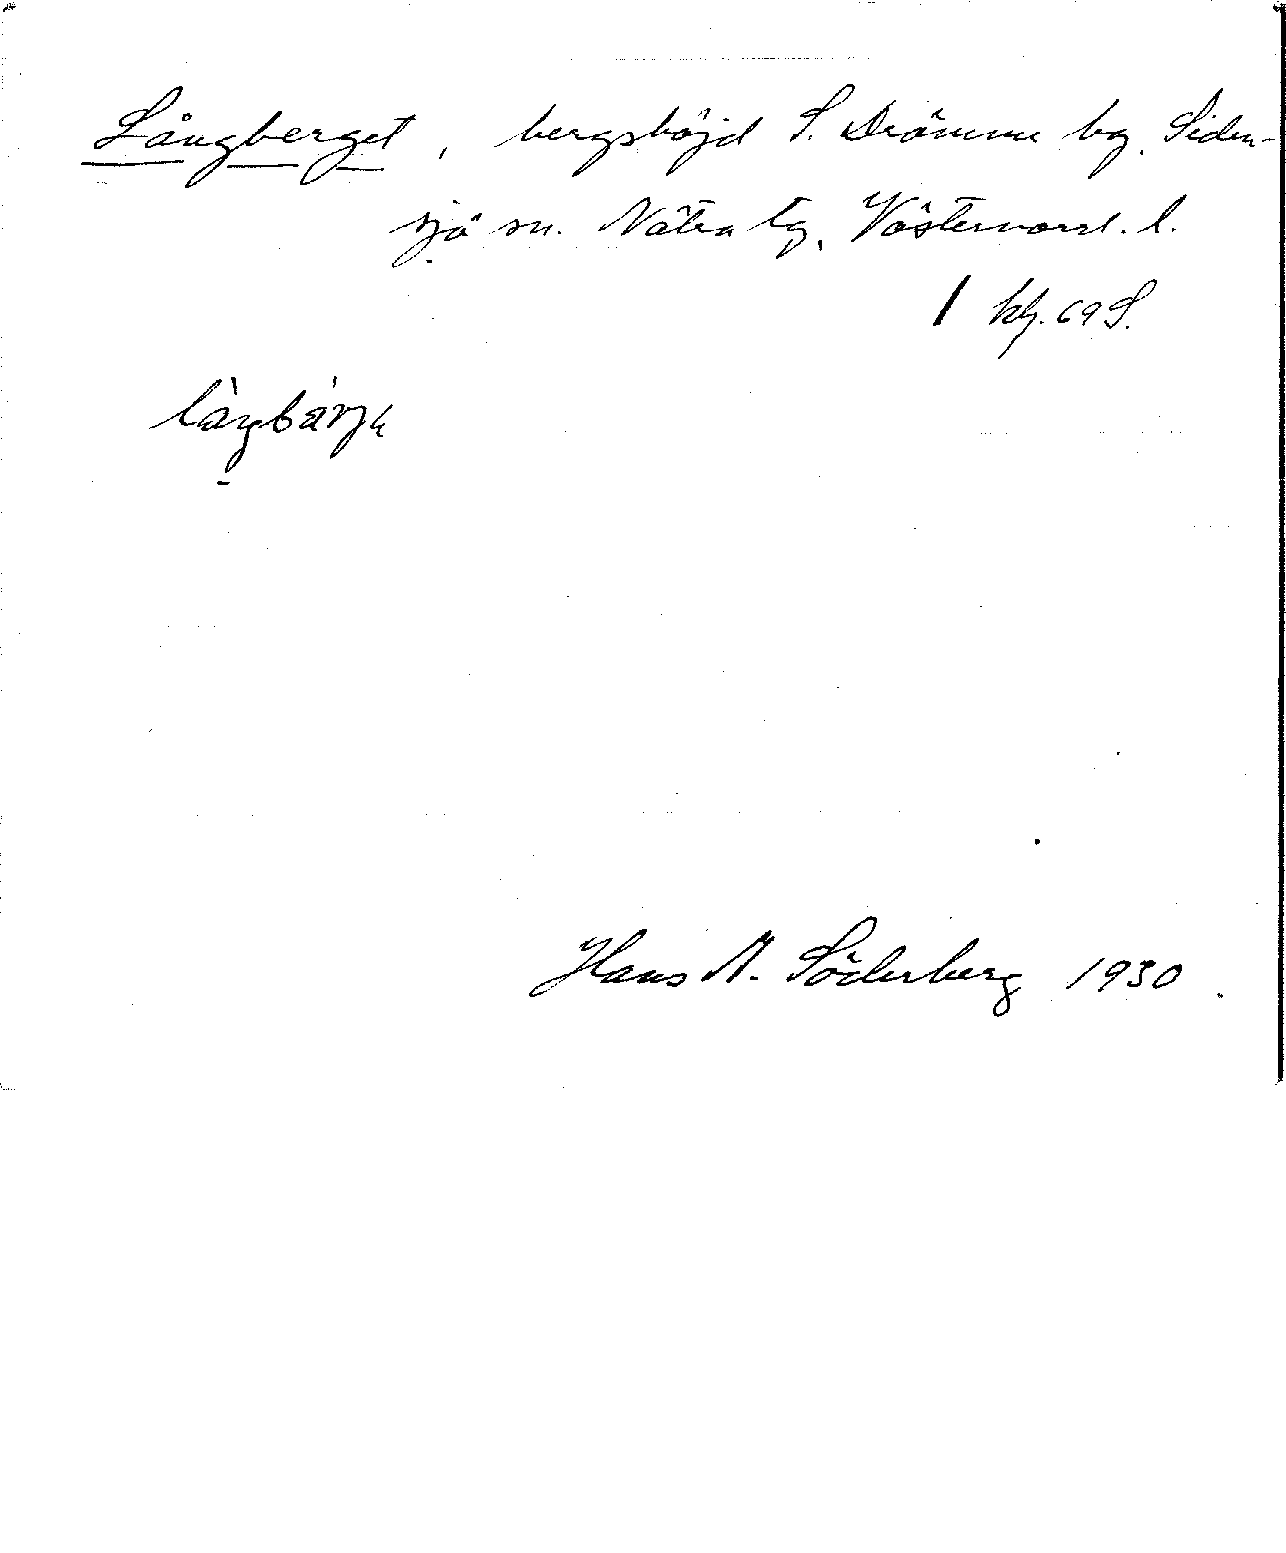 Långberget, bergshöjd S. Drömme by, Siden-
sjö sn. Nätra tg, Västernorrl. l.
/ kbl. 69 S.
Hans A. Söderberg 1930.